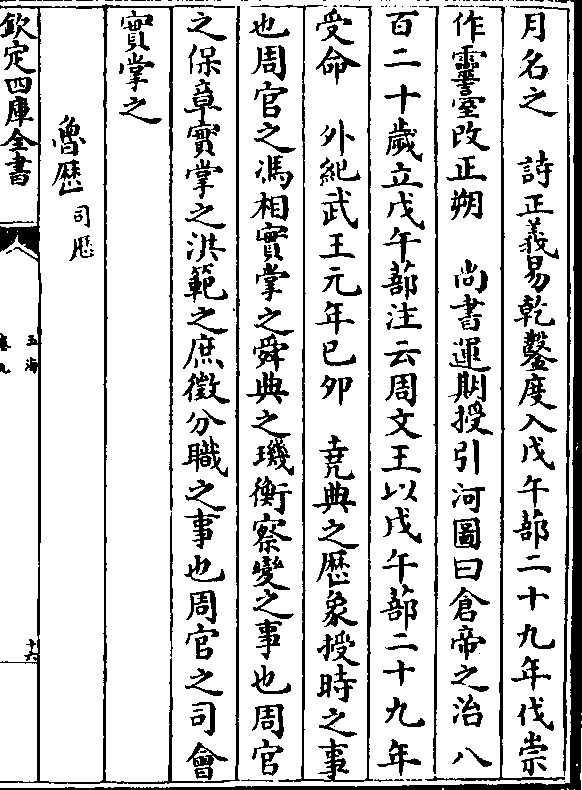 月名之　詩正義易乾鑿度入戊午蔀二十九年伐崇
作靈臺改正朔　尚書運期授引河圖曰倉帝之治八
百二十歲立戊午蔀注云周文王以戊午蔀二十九年
受命　外紀武王元年巳夘　堯典之厯象授時之事
也周官之馮相實掌之舜典之璣衡察變之事也周官
之保章實掌之洪範之庶徵分職之事也周官之司會
實掌之
魯厯 司厯
欽定四庫全書
玉海
卷九
十六